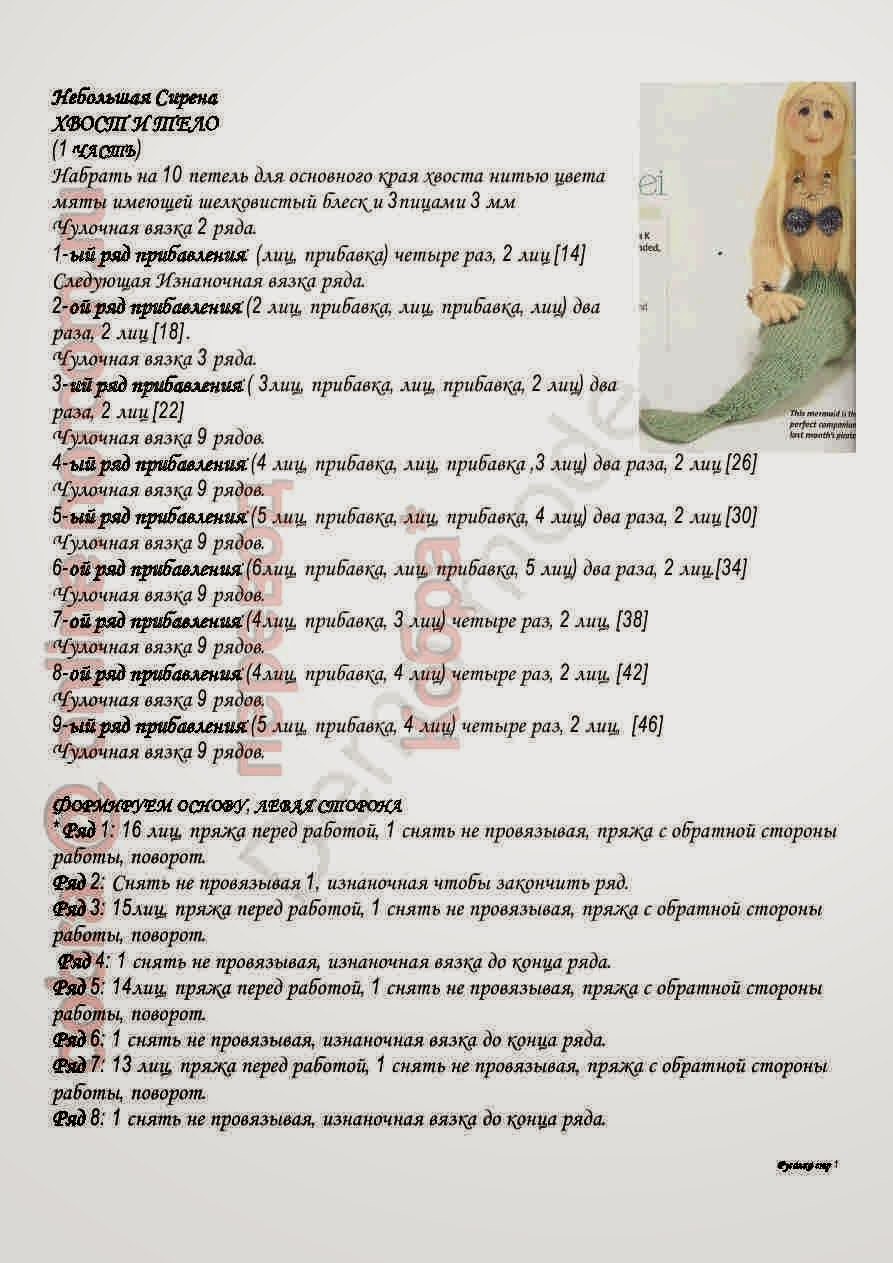 Небольшая Сирена
ХВОСТ И ТЕЛО
(1 ЧАСТЬ)
Набрать на 10 петель для основного края хвоста нитью цвета
мяты имеющей шелковистый блеск и 3пицами 3 мм
Чулочная вязка 2 ряда.
1-ый ряд прибавления: (лиц, прибавка) четыре раз, 2 лиц [14]
Следующая Изнаночная вязка ряда.
2-ой ряд прибавления: (2 лиц, прибавка, лиц, прибавка, лиц) два
раза, 2 лиц [18].
Чулочная вязка 3 ряда.
3-ий ряд прибавления: ( 3лиц, прибавка, лиц, прибавка, 2 лиц) два
раза, 2 лиц [22]
Чулочная вязка 9 рядов.
4-ый ряд прибавления: (4 лиц, прибавка, лиц, прибавка ,3 лиц) два раза, 2 лиц [26]
Чулочная вязка 9 рядов.
5-ый ряд прибавления: (5 лиц, прибавка, лиц, прибавка, 4 лиц) два раза, 2 лиц [30]
Чулочная вязка 9 рядов.
6-ой ряд прибавления: (6лиц, прибавка, лиц, прибавка, 5 лиц) два раза, 2 лиц.[34]
Чулочная вязка 9 рядов.
7-ой ряд прибавления: (4лиц, прибавка, 3 лиц) четыре раз, 2 лиц, [38]
Чулочная вязка 9 рядов.
8-ой ряд прибавления: (4лиц, прибавка, 4 лиц) четыре раз, 2 лиц, [42]
Чулочная вязка 9 рядов.
9-ый ряд прибавления: (5 лиц, прибавка, 4 лиц) четыре раз, 2 лиц, [46]
Чулочная вязка 9 рядов.
ФОРМИРУЕМ ОСНОВУ, ЛЕВАЯ СТОРОНА
* Ряд 1: 16 лиц, пряжа перед работой, 1 снять не провязывая, пряжа с обратной стороны
работы, поворот.
Ряд 2: Снять не провязывая 1, изнаночная чтобы закончить ряд.
Ряд 3: 15лиц, пряжа перед работой, 1 снять не провязывая, пряжа с обратной стороны
работы, поворот.
Ряд 4: 1 снять не провязывая, изнаночная вязка до конца ряда.
Ряд 5: 14лиц, пряжа перед работой, 1 снять не провязывая, пряжа с обратной стороны
работы, поворот.
Ряд 6: 1 снять не провязывая, изнаночная вязка до конца ряда.
Ряд 7: 13 лиц, пряжа перед работой, 1 снять не провязывая, пряжа с обратной стороны
работы, поворот.
Ряд 8: 1 снять не провязывая, изнаночная вязка до конца ряда.
This mermaid is the
perfect companion
last month's pirate
перевод
кобра*
Demo mode
Русалка стр 1